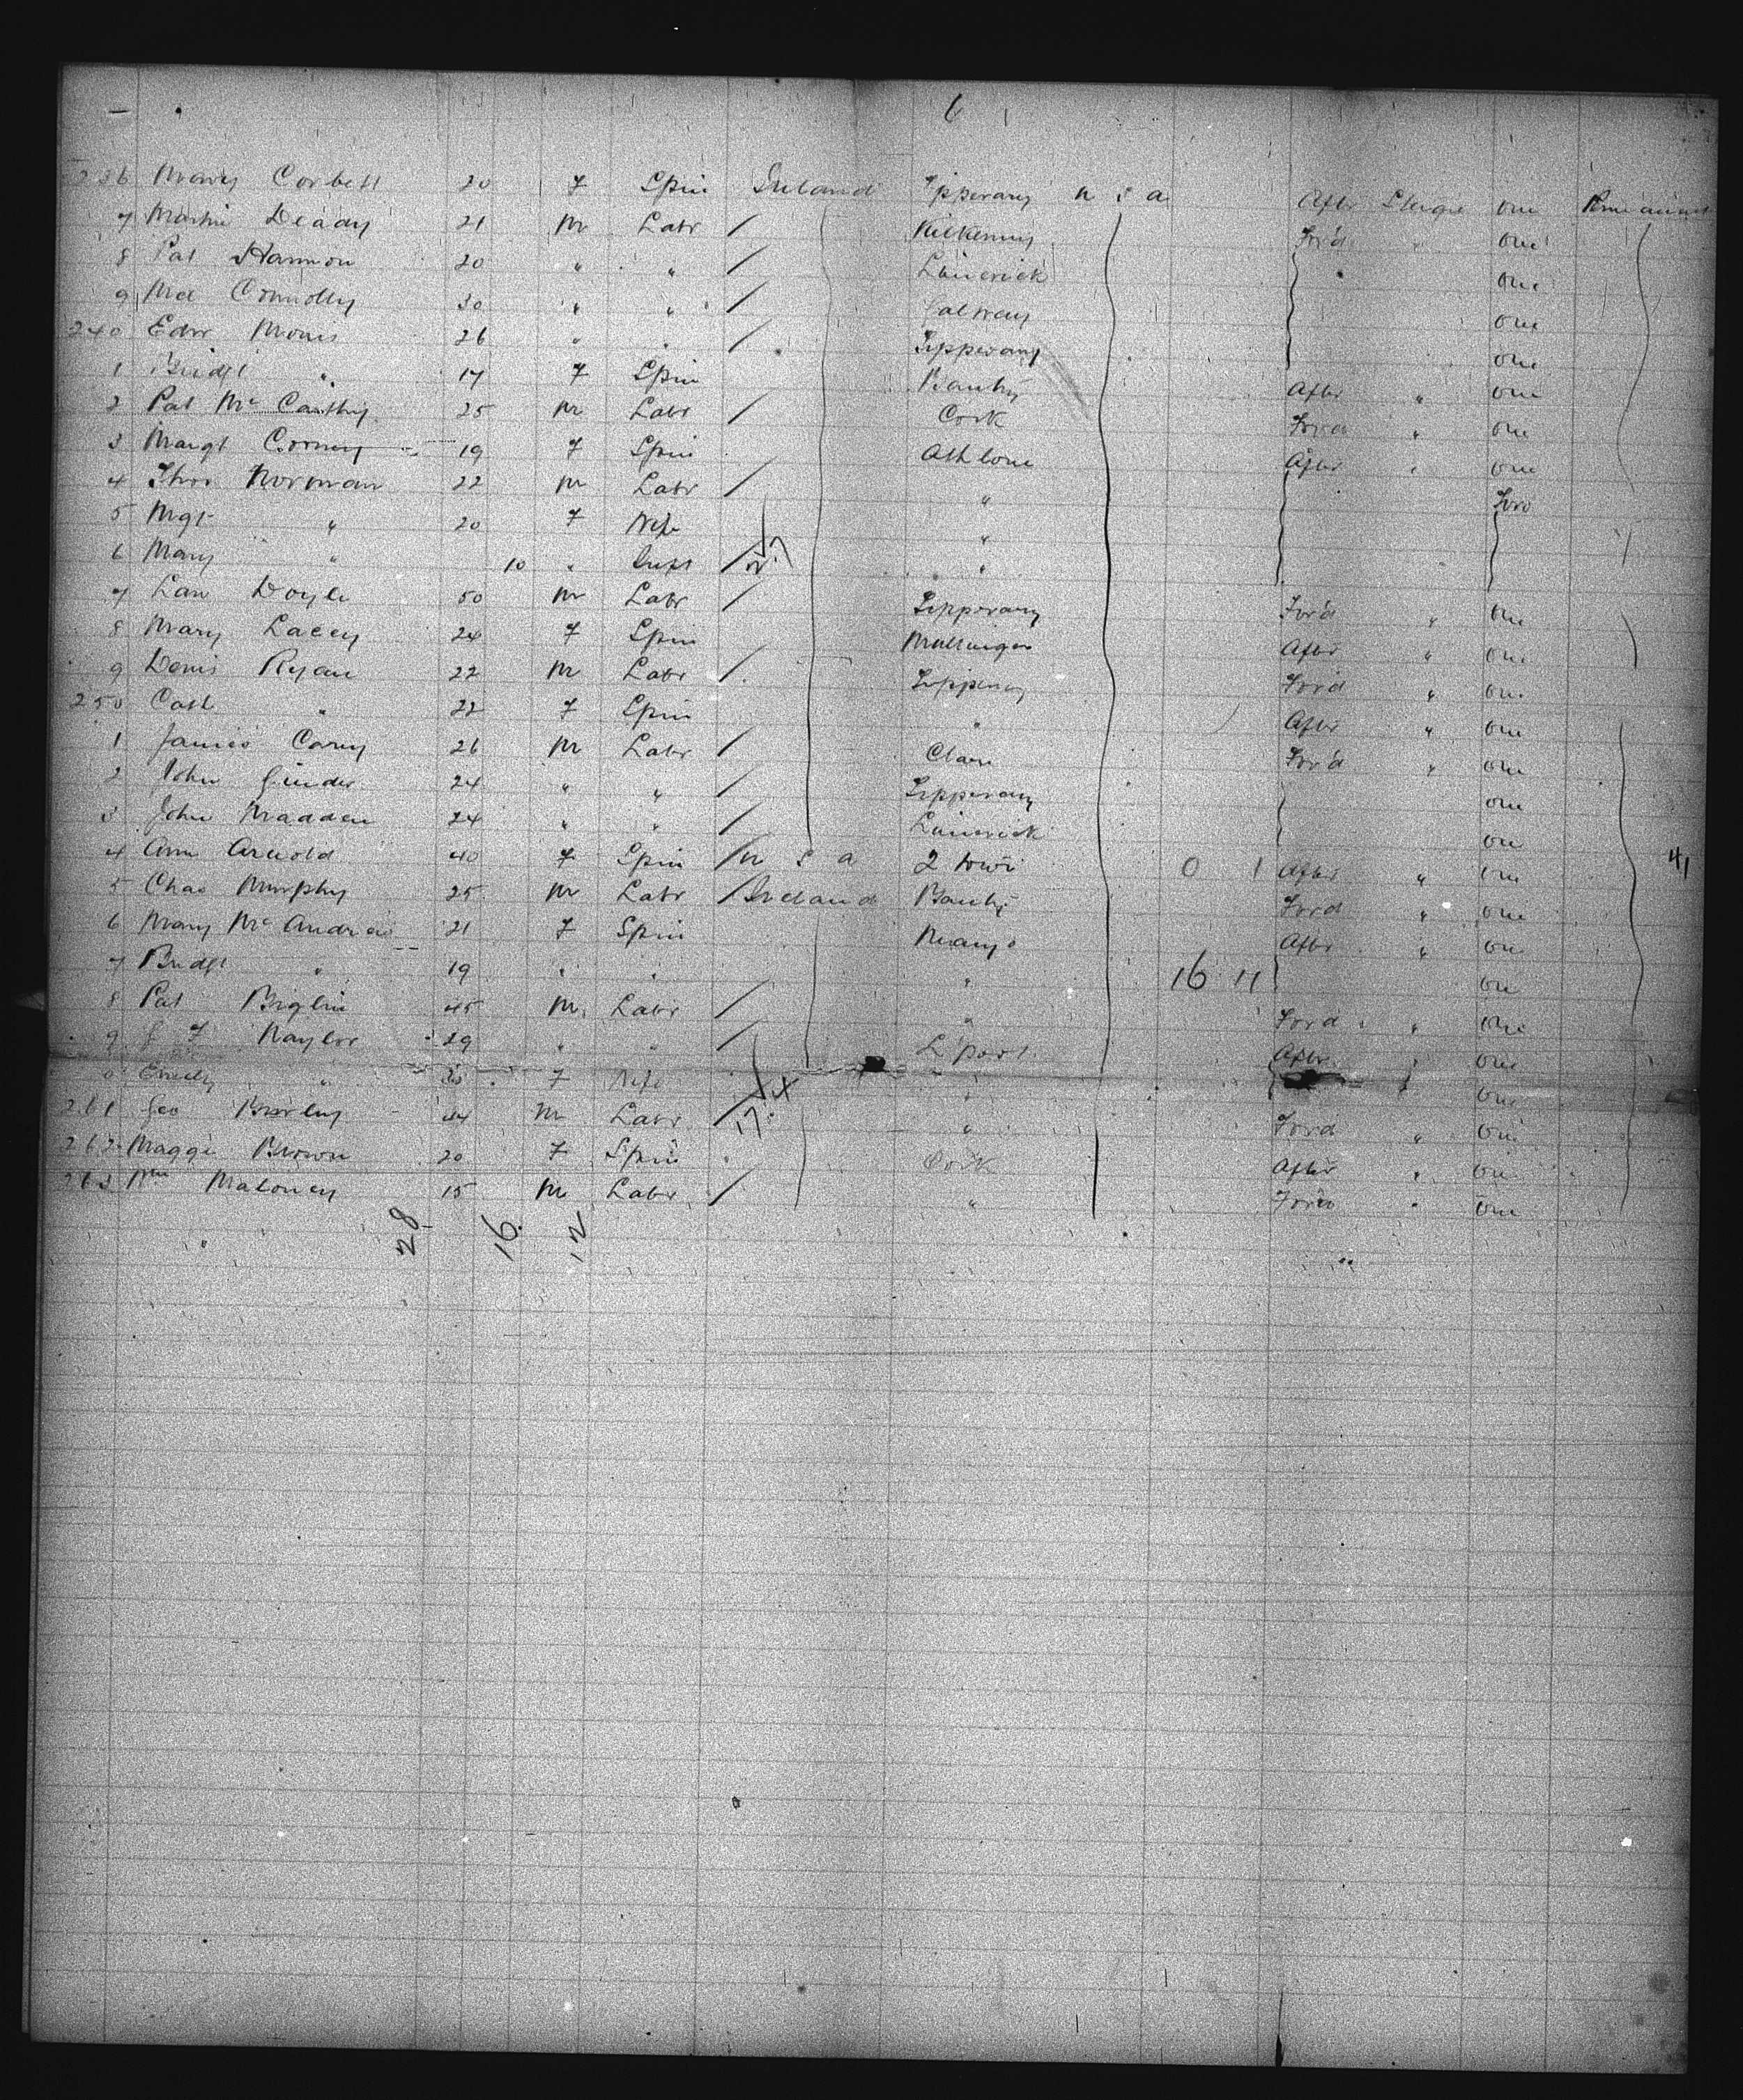 6
236 Mary Corbett 20 F Spin Ireland Tipperary U S A After Steerage One
7 Martin Deady 21 M Labr / Kilkenny For'd " One
8 Pat Hannon 20 " " / Limerick One
9 Mcl Connolly 30 " " / Galway One
240 Edw Morris 26 " " / Tipperary One
1 Bridgt " 17 F Spin Bantry After " One
2 Pat McCarthy 25 M Labr / Cork For'd " One
3 Margt Cooney 19 F Spin Athlone After " One
4 Thos Norman 22 M Labr / " Two
5 Mgt " 20 F Wife "
6 Mary " 10 " Inft / "
7 Law Doyle 50 M Labr / Tipperary For'd " One
8 Mary Lacey 24 F Spin Mullingar After " One
9 Denis Ryan 22 M Labr / Tipperary For'd " One
250 Cath " 22 F Spin " After " One
1 James Carey 26 M Labr / Clare For'd " One
2 John 24 " " / Tipperary One
3 John Madden 24 " " / Limerick One
4 Ann Arnold 40 F Spin / U S A 0 1 After " One 41
5 Chas Murphy 25 M Labr / Ireland Bantry For'd " One
6 Mary McAndrew 21 F Spin Mayo After " One
7 Bridgt " 19 " " " 16 11 One
8 Pat Biglin 45 M Labr / " For'd " One
9 Naylor 29 " " / L'pool After " One
0 Emily " F Wife " One
261 Geo 44 M Labr / " For'd " One
262 Maggie Brown 20 F Spin Cork After " One
263 Wm Maloney 15 M Labr / " For'd " One
28 16 12